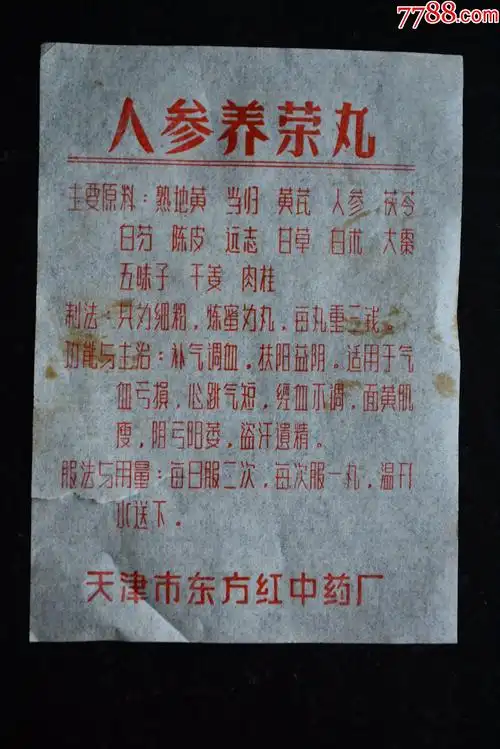 7788.com
人参养荣丸
主要原料：熟地黄 当归 黄芪 人参 茯苓
白芍 陈皮 远志 甘草 白术 大枣
五味子 干姜 肉桂
制法：共为细粉，炼蜜为丸，每丸重三钱。
功能与主治：补气调血，扶阳益阴。适用于气
血亏损，心跳气短，经血不调，面黄肌
瘦，阴亏阳萎，盗汗遗精。
服法与用量：每日服二次，每次服一丸，温开
水送下。
天津市东方红中药厂